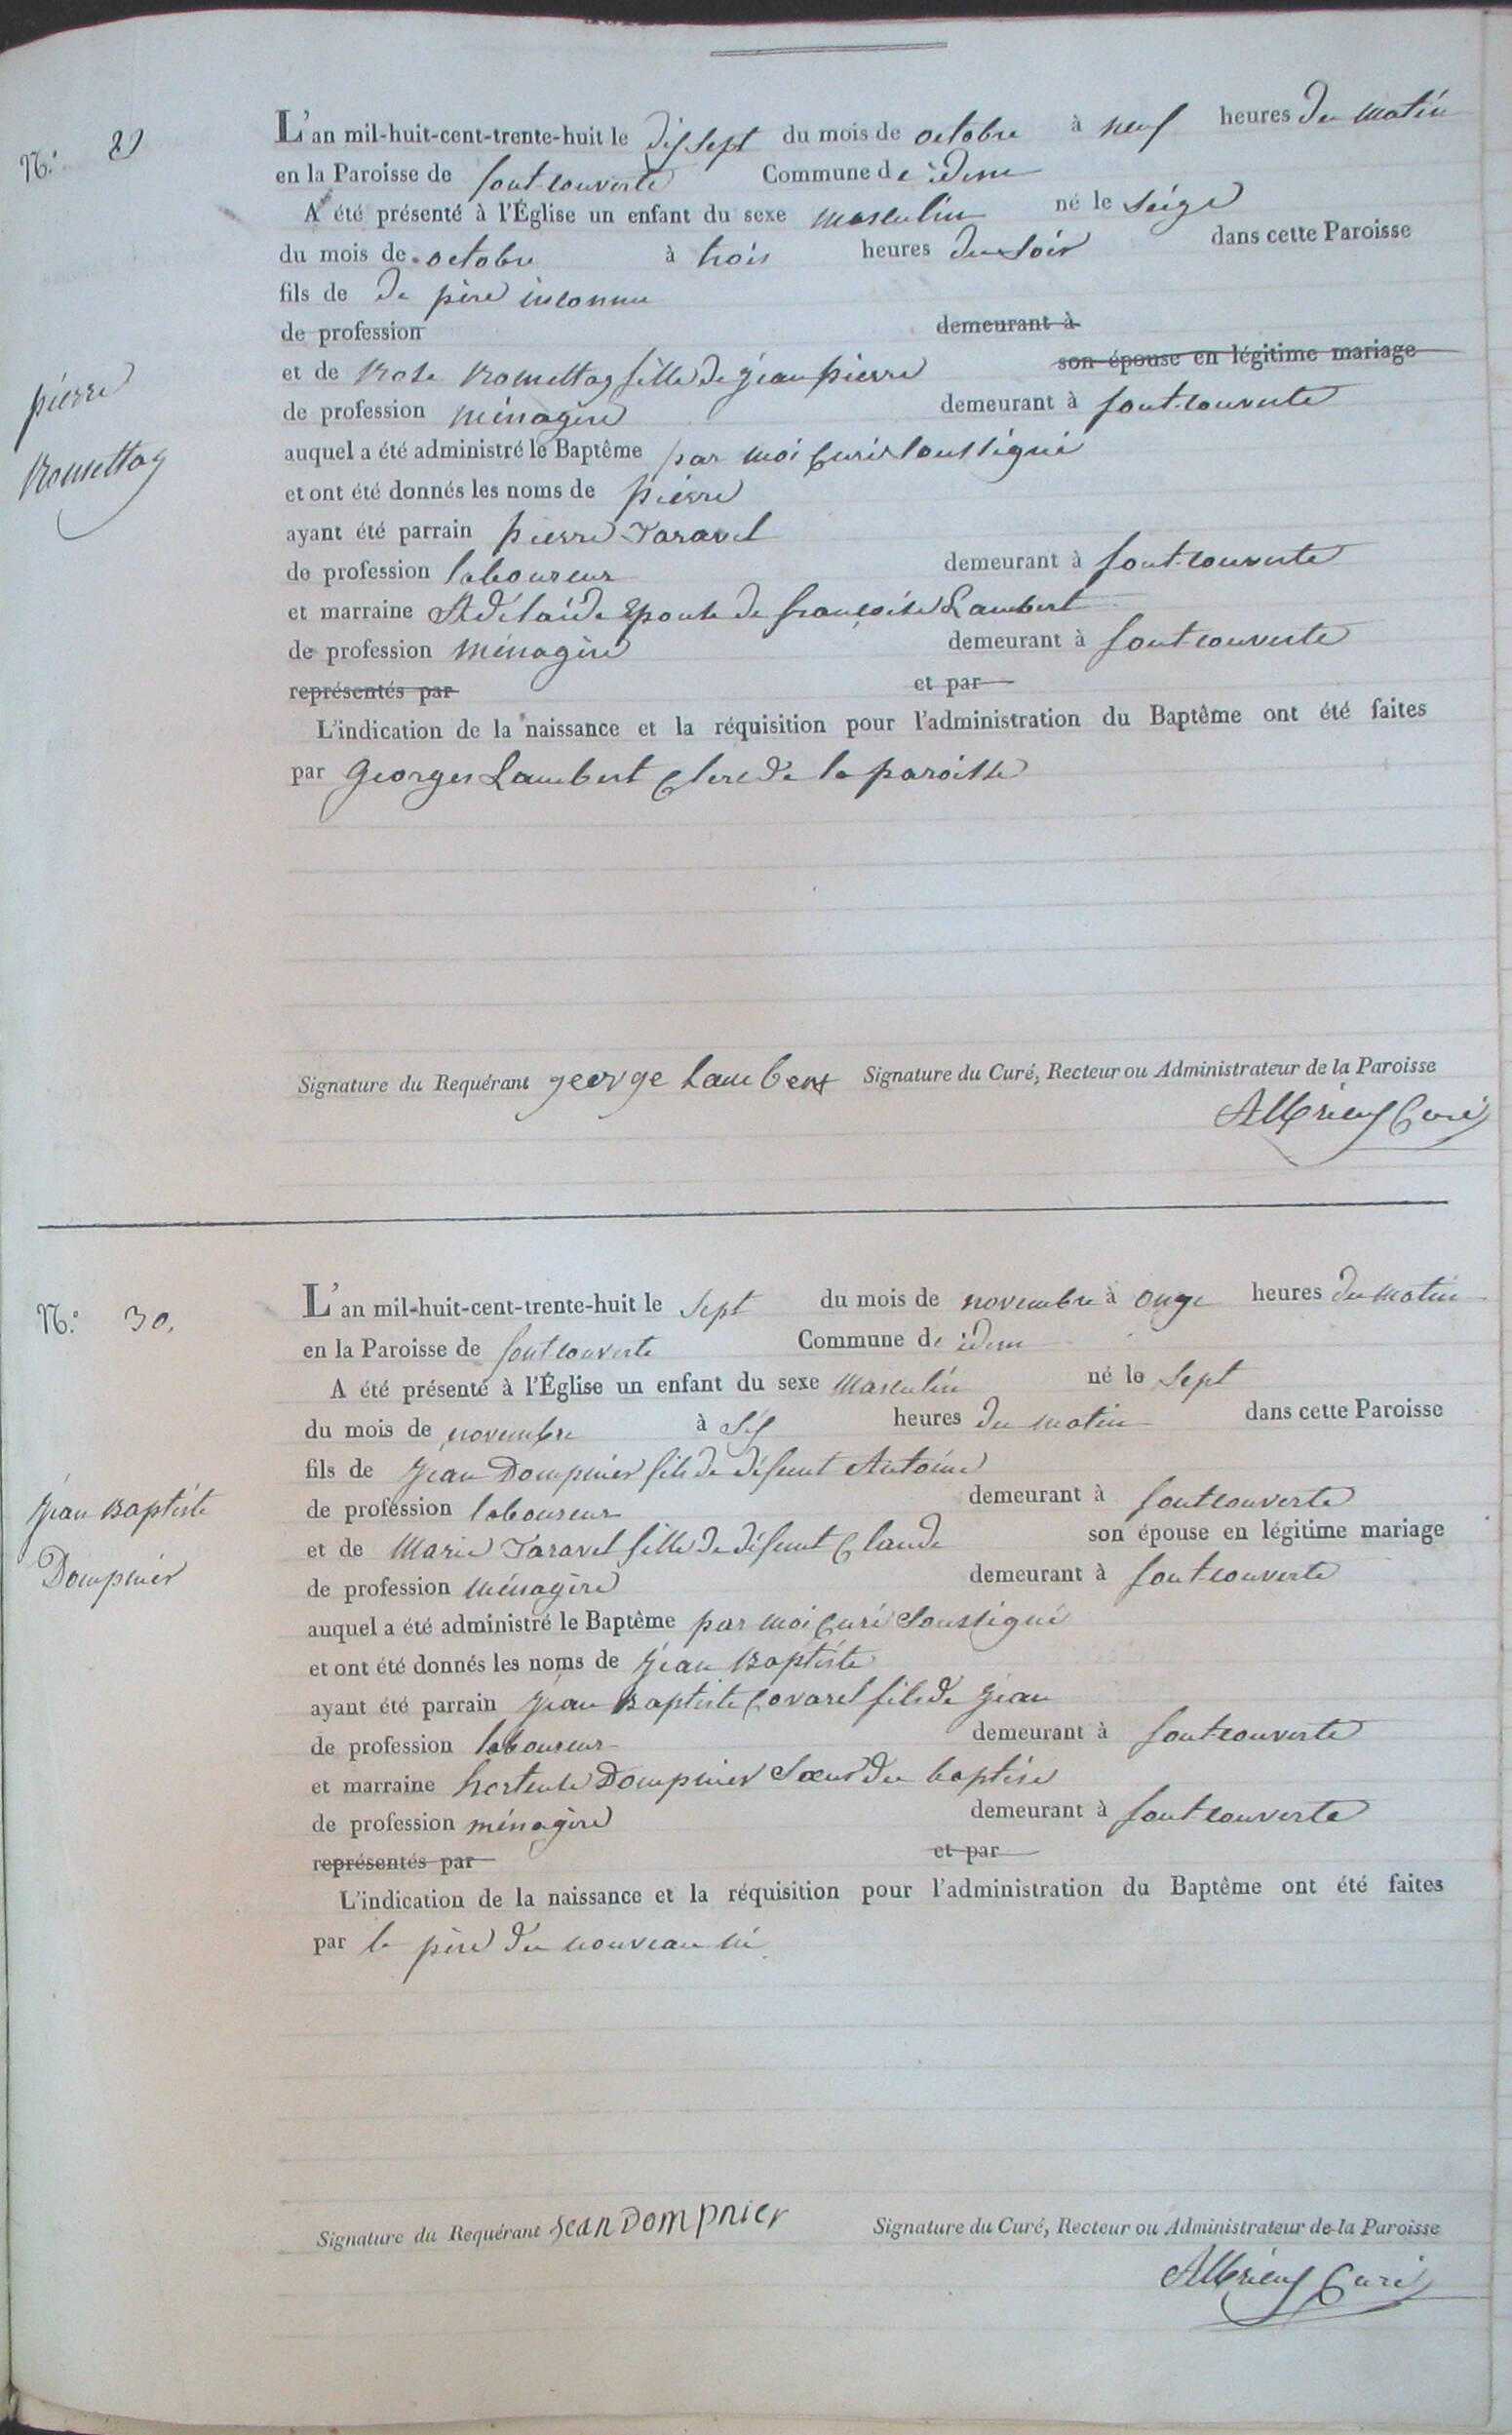 N.° 29
L'an mil-huit-cent-trente-huit le dixsept du mois de octobre à neuf heures du matin
en la Paroisse de fontcouverte Commune de idem
A été présenté à l'Église un enfant du sexe masculin né le seize
du mois de octobre à trois heures du soir dans cette Paroisse
fils de de père inconnu
de profession demeurant à
et de Rose Romettaz fille de jean pierre son épouse en légitime mariage
pierre
de profession ménagère demeurant à fontcouverte
auquel a été administré le Baptême par moi Curé soussigné
Romettaz
et ont été donnés les noms de pierre
ayant été parrain pierre Taravel
de profession laboureur demeurant à fontcouverte
et marraine Adélaide Epouse de françoise Lambert
de profession ménagère demeurant à fontcouverte
représentés par et par
L'indication de la naissance et la réquisition pour l'administration du Baptême ont été faites
par Georges Lambert Clerc de la paroisse
Signature du Requérant george Lambert Signature du Curé, Recteur ou Administrateur de la Paroisse
Curé
N.° 30.
L'an mil-huit-cent-trente-huit le sept du mois de novembre à onze heures du matin
en la Paroisse de fontcouverte Commune de idem
A été présenté à l'Église un enfant du sexe masculin né le sept
du mois de novembre à six heures du matin dans cette Paroisse
fils de jean Dompnier fils de défunt Antoine
jean Baptiste
de profession laboureur demeurant à fontcouverte
et de Marie Taravel fille de défunt Claude son épouse en légitime mariage
Dompnier
de profession ménagère demeurant à fontcouverte
auquel a été administré le Baptême par moi Curé soussigné
et ont été donnés les noms de jean Baptiste
ayant été parrain jean Baptiste Covarel fils de jean
de profession laboureur demeurant à fontcouverte
et marraine hortense Dompnier soeur du baptisé
de profession ménagère demeurant à fontcouverte
représentés par et par
L'indication de la naissance et la réquisition pour l'administration du Baptême ont été faites
par le père du nouveau né
Signature du Requérant Jean Dompnier Signature du Curé, Recteur ou Administrateur de la Paroisse
Curé